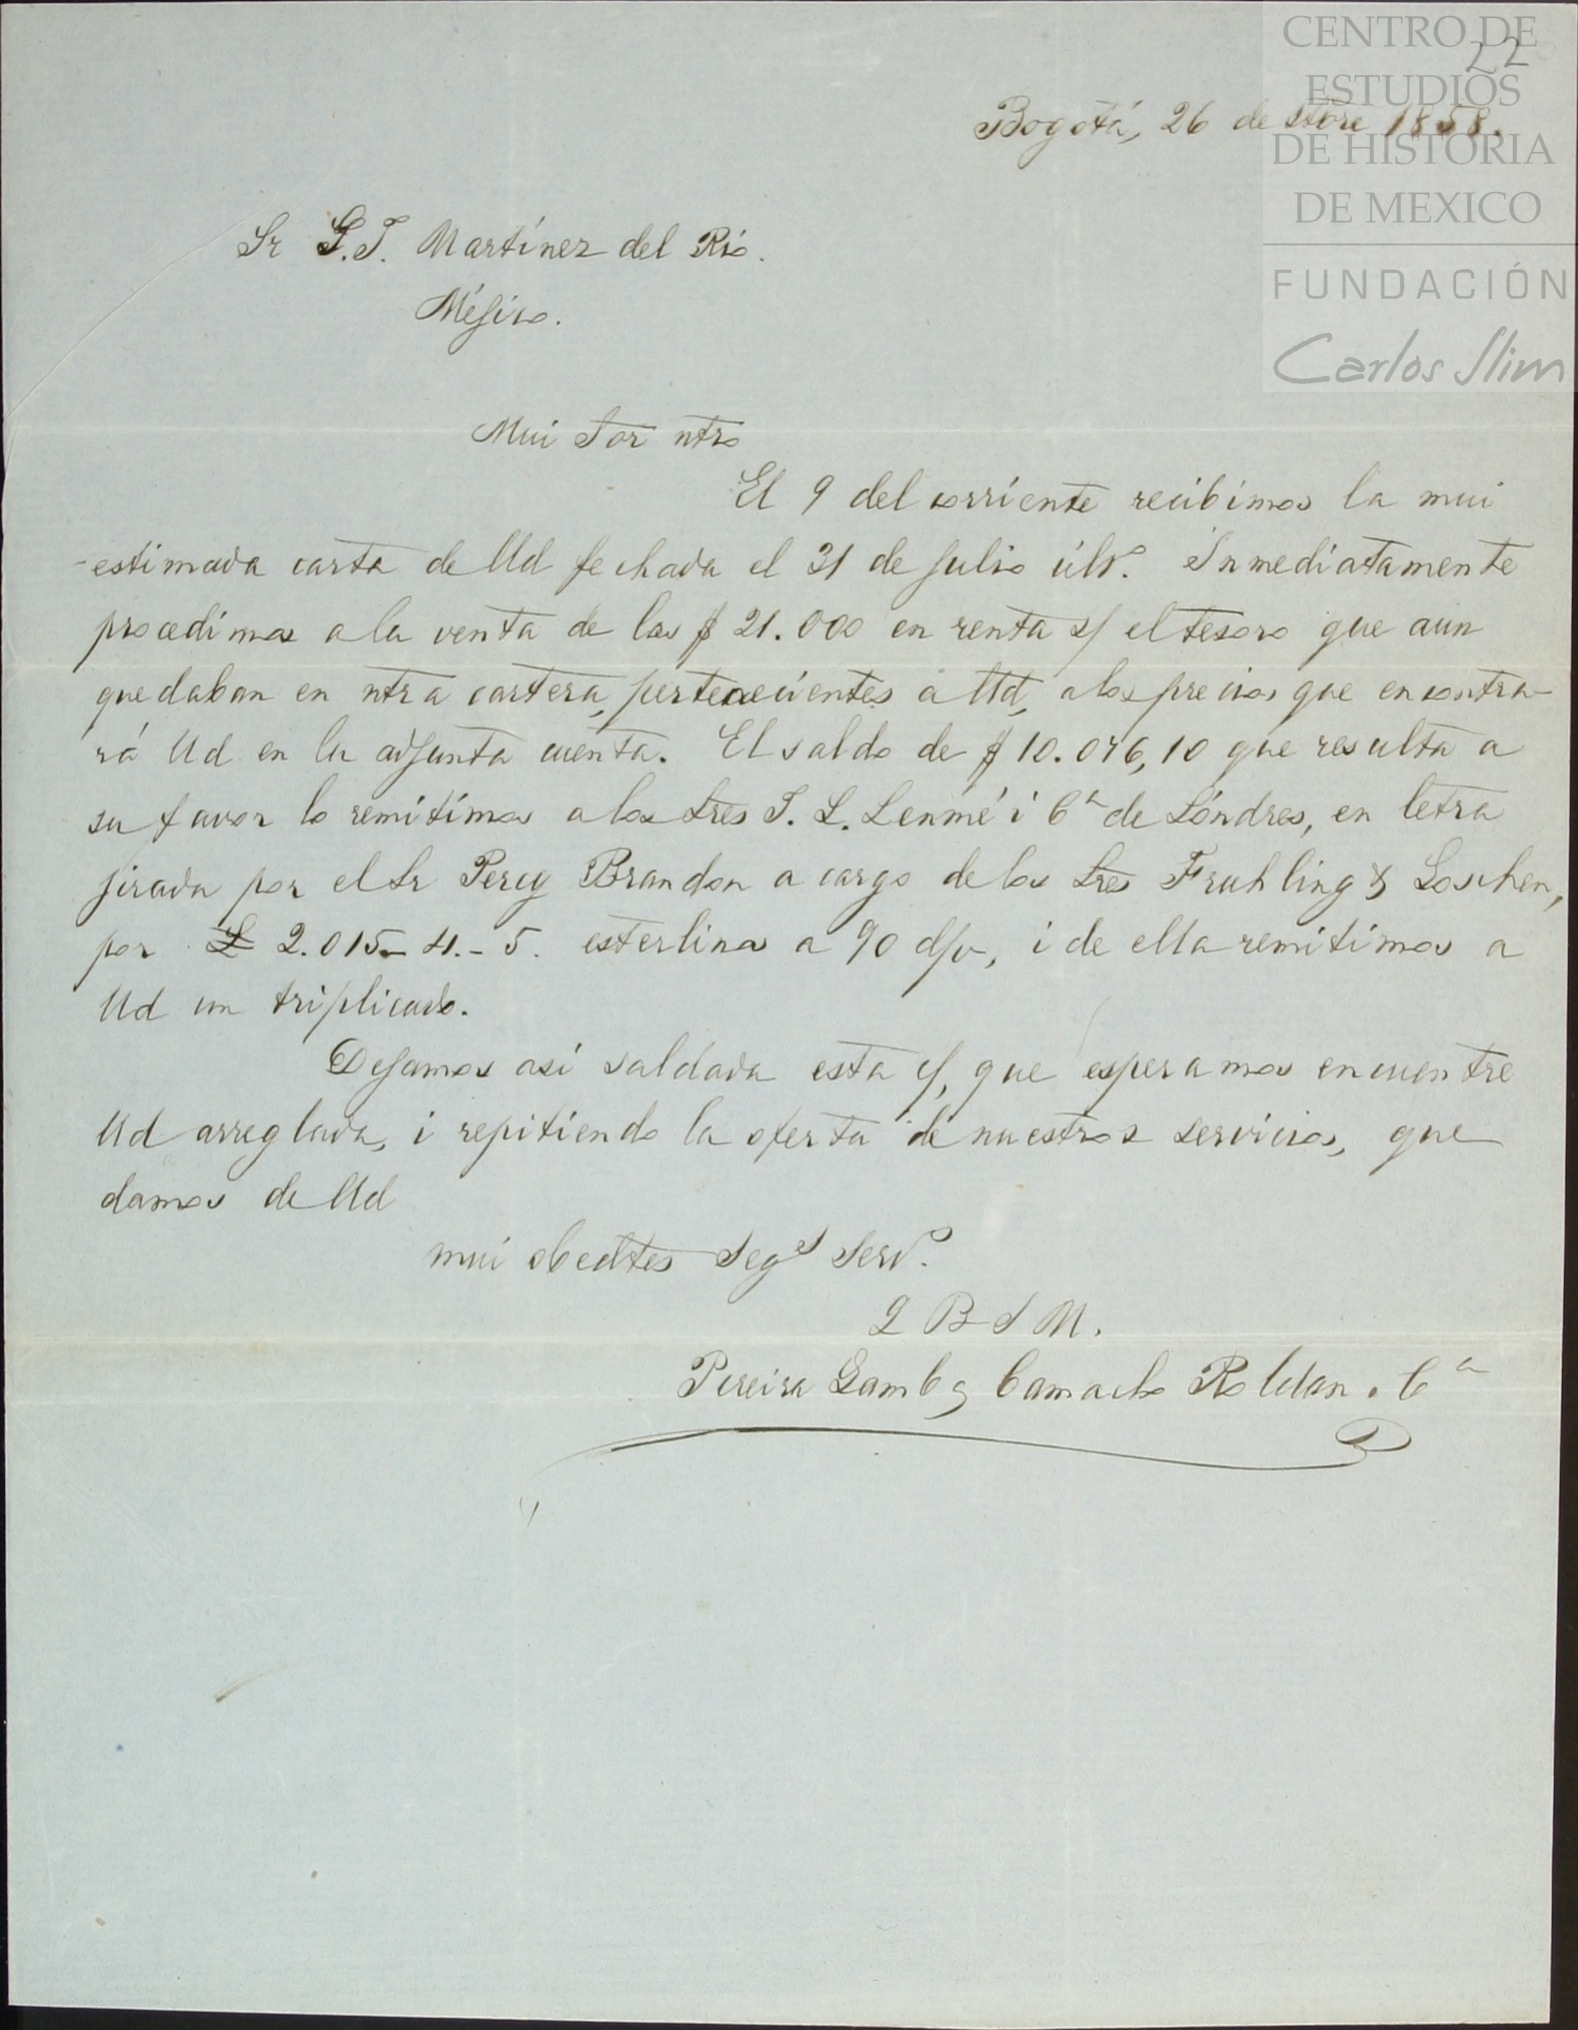 CENTRO DE
22
ESTUDIOS
DE HISTORIA
DE MEXICO
FUNDACIÓN
Carlos Slim
Bogotá, 26 de stbre 1858.
Sr G.J. Martínez del Rio.
Méjico.
Mui Sor ntro
El 9 del corriente recibimos la mui
estimada carta de Ud fechada el 31 de julio últº. Inmediatamente
procedimos a la venta de los $ 21.000 en renta s/ el tesoro que aun
quedaban en ntra cartera, pertenecientes a Ud, a los precios que encontra-
rá Ud en la adjunta cuenta. El saldo de $ 10.076,10 que resulta a
su favor lo remitimos a los Sres J. L. Lemmé i Cª de Lóndres, en letra
jirada por el Sr Percy Brandon a cargo de los Sres Fruhling & Goschen,
por £ 2.015-4.-5. esterlinas a 90 d/v, i de ella remitimos a
Ud un triplicado.
Dejamos asi saldada esta c/, que esperamos encuentre
Ud arreglada, i repitiendo la oferta de nuestros servicios, que
damos de Ud
mui obedtes Segs Servs.
Q B S M.
Pereira Gamba, Camacho Roldan i Cª